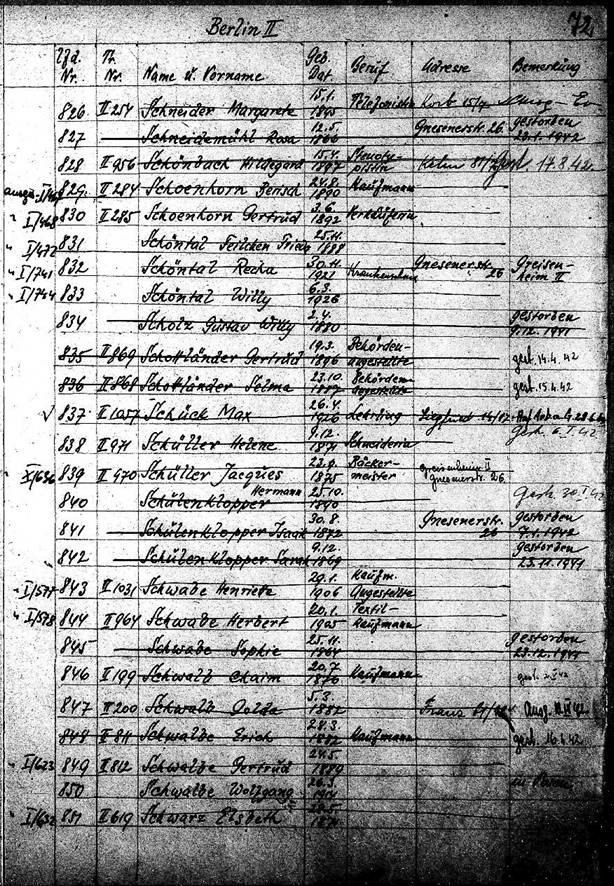 Berlin II 72
Lfd. Nr. Tr. Nr. Name u. Vorname Geb. Dat. Beruf Adresse Bemerkung
826 II 254 Schneider Margarete 15.1. 1895 Telefonistin
827 Schneidemühl Rosa 12.5. 1866 Gnesenerstr. 26. gestorben 23.1.1942
828 II 956 Schönbach Hildegard 15.4. 1897 Stenotypistin 17.3.42.
829. II 284 Schoenkorn Bensch 24.8. 1890 Kaufmann
I/468 830 II 285 Schoenkorn Gertrud 3.6. 1892 Verkäuferin
I/472 831 Schöntal 25.11. 1888
I/741 832 Schöntal Recha 30.11. 1921 Gnesenerstr. 26 Greisenheim II
I/744 833 Schöntal Willy 6.3. 1926
834 Scholz Gustav Willy 2.4. 1880 gestorben 9.12.1941
835 II 869 Schottländer Gertrud 19.3. 1896 Behördenangestellte gest. 14.4.42
836 II 868 Schottländer Selma 23.10. 1887 Behördenangestellte gest. 15.4.42
√ 837 II 1057 Schück Max 26.4. 1926 Lehrling
838 II 971 Schüller Helene 9.12. 1871 Schneiderin
I/636 839 II 970 Schüller Jacques 22.9. 1875 Bäckermeister Greisenheim II Gnesenerstr. 26
840 Schülenklopper Hermann 25.10. 1890
841 Schülenklopper Isaak 30.8. 1872 Gnesenerstr. 26 gestorben 7.1.1942
842 Schülenklopper Sarah 9.12. 1869 gestorben 23.11.1941
I/577 843 II 1031 Schwabe Henriette 29.1. 1906 Kaufm. Angestellte
I/578 844 II 964 Schwabe Herbert 20.1. 1905 Textil-Kaufmann
845 Schwabe Sophie 25.11. 1864 gestorben 23.12.1941
846 II 199 Schwalb Chaim 20.7. 1870 Kaufmann
847 II 200 Schwalb Golda 5.3. 1882
848 II 811 Schwalbe Erich 28.3. 1882 Kaufmann gest. 16.4.42
I/623 849 II 812 Schwalbe Gertrud 24.5. 1889
850 Schwalbe Wolfgang
I/632 851 II 619 Schwarz Elsbeth